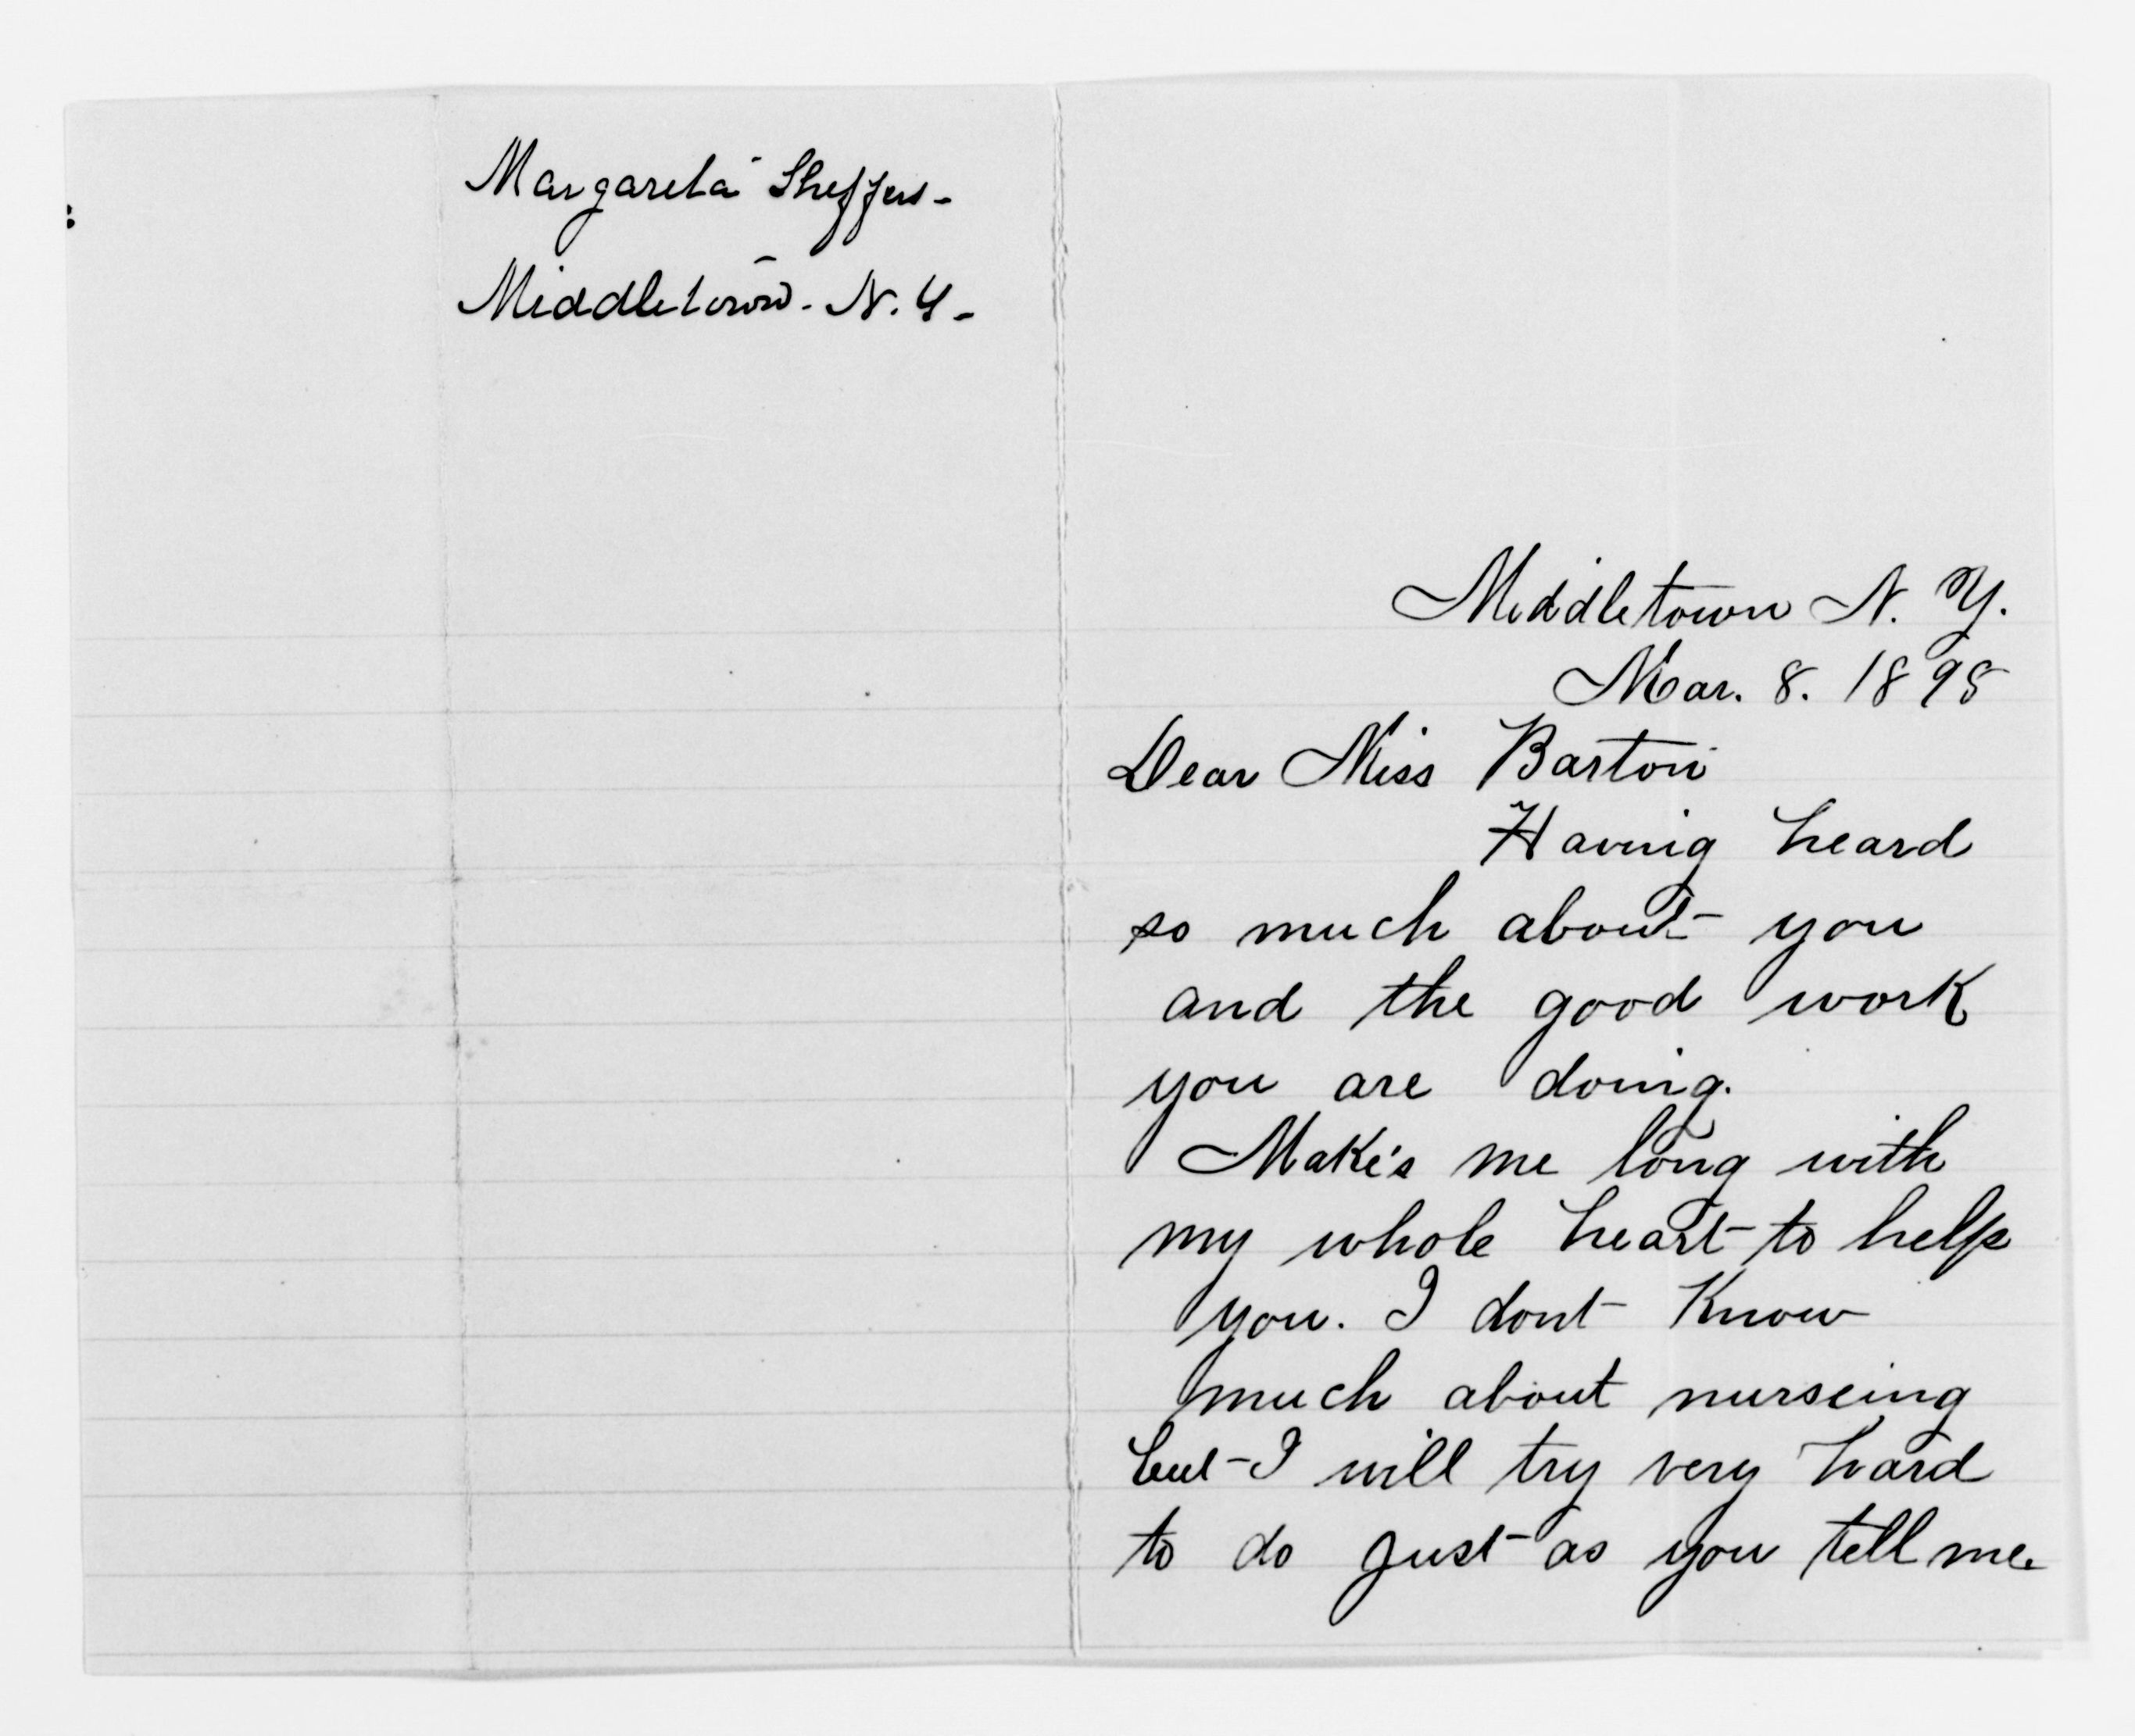 Margareta Sheffers-
Middletown - N.Y-
Middletown N. Y.
Mar. 8. 1898
Dear Miss Barton
Having heard
so much about you
and the good work
you are doing.
Make's me long with
my whole heart to help
you. I dont Know
much about nurseing
but I will try very hard
to do just as you tell me.